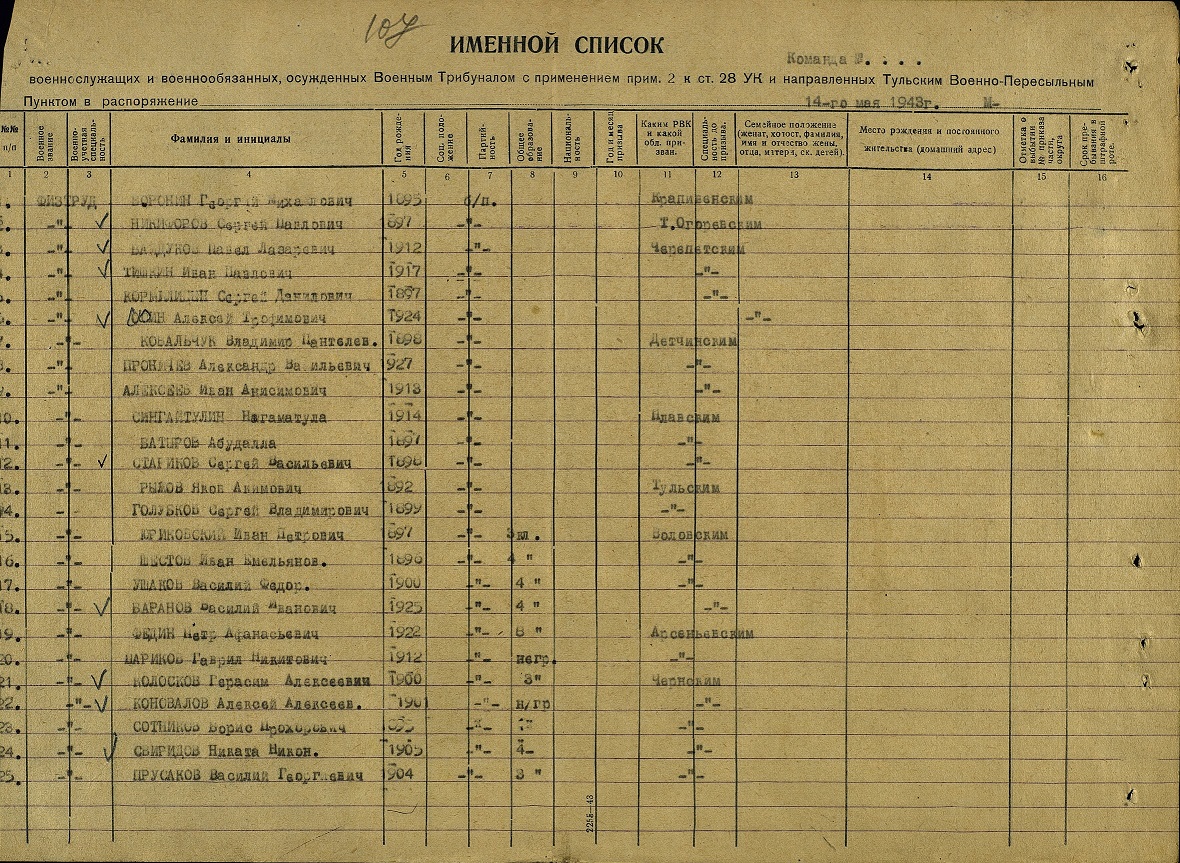 107
ИМЕННОЙ СПИСОК
Команда №. . . .
военнослужащих и военнообязанных, осужденных Военным Трибуналом с применением прим. 2 к ст. 28 УК и направленных Тульским Военно-Пересыльным
Пунктом в распоряжение 14-го мая 1943г. М-
№№ п/п Военное звание Военно-учетная специальность Фамилия и инициалы Год рождения Соц. положение Партийность Общее образование Национальность Год и месяц призыва Каким РВК и какой обл. призван. Специальность до призыва. Семейное положение (женат, холост, фамилия, имя и отчество жены, отца, матери, ск. детей). Место рождения и постоянного жительства (домашний адрес) Отметка о выбытии № приказа части, округа Срок пребывания в штрафной роте.
1 2 3 4 5 6 7 8 9 10 11 12 13 14 15 16
1. ФИЗТРУД ВОРОНИН Георгий Михайлович 1895 б/п. Крапивенским
2. -"- НИКИФОРОВ Сергей Павлович 1897 -"- Т.Огоревским
3. -"- Павел Лазаревич 1912 -"- Черепетским
4. -"- ТИШКИН Иван Павлович 1917 -"- -"-
5. -"- КОРМИЛИЦИН Сергей Данилович 1897 -"- -"-
6. -"- Алексей Трофимович 1924 -"- -"-
7. -"- КОВАЛЬЧУК Владимир Пантелев. 1898 -"- Детчинским
8. -"- ПРОНИЧЕВ Александр Васильевич 1927 -"- -"-
9. -"- АЛЕКСЕЕВ Иван Анисимович 1913 -"- -"-
10. -"- СИНГАЙТУЛИН Нагаматула 1914 -"- Плавским
11. -"- БАТЫРОВ Абудалла 1897 -"- -"-
12. -"- СТАРИКОВ Сергей Васильевич 1898 -"- -"-
13. -"- РЫЛОВ Яков Акимович 1892 -"- Тульским
14. -"- ГОЛУБКОВ Сергей Владимирович 1899 -"- -"-
15. -"- ЮРИКОВСКИЙ Иван Петрович 1897 -"- 3кл. Воловским
16. -"- ШЕСТОВ Иван Емельянов. 1896 -"- 4 " -"-
17. -"- УШАКОВ Василий Федор. 1900 -"- 4 " -"-
18. -"- БАРАНОВ Василий Иванович 1925 -"- 4 " -"-
19. -"- ФЕДИН Петр Афанасьевич 1922 -"- 8 " Арсеньевским
20. -"- ШАРИКОВ Гаврил Никитович 1912 -"- негр. -"-
21. -"- КОЛОСКОВ Герасим Алексеевич 1900 -"- 3" Чернским
22. -"- КОНОВАЛОВ Алексей Алексеев. 1901 -"- н/гр -"-
23. -"- СОТНИКОВ Борис Прохорович 1895 -"- -"-
24. -"- СВИРИДОВ Никата Никон. 1905 -"- 4- -"-
25. -"- ПРУСАКОВ Василий Георгиевич 1904 -"- 3 " -"-
2258—43